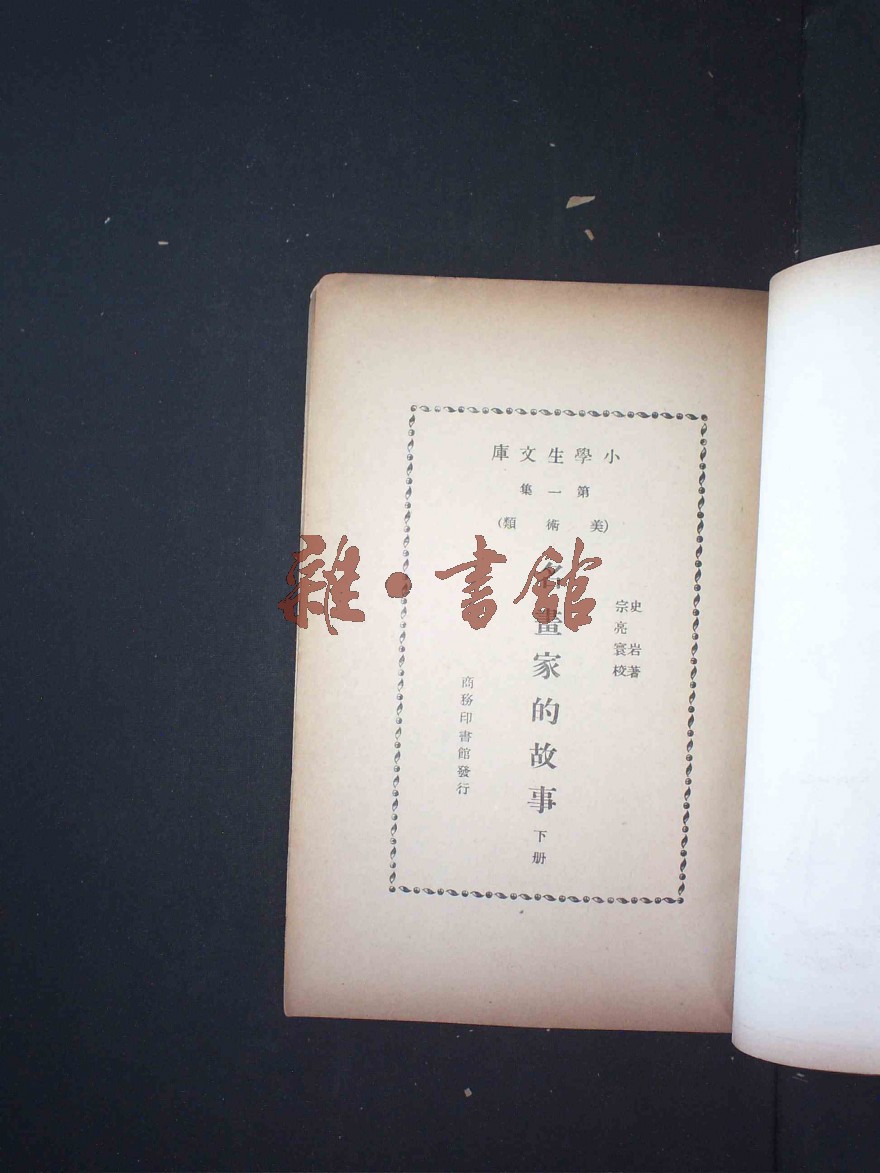 小學生文庫
第一集
(美術類)
史岩著
宗亮寰校
名畫家的故事 下册
商務印書館發行
雜·書館